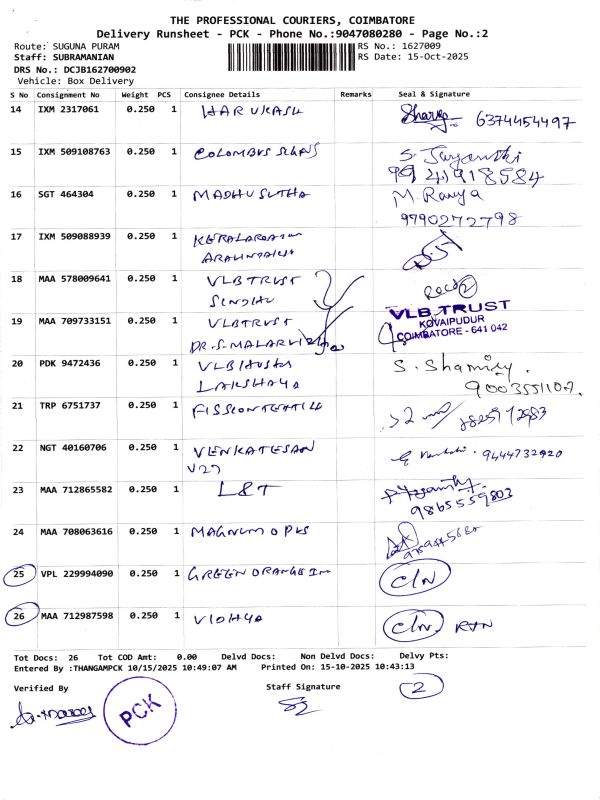 THE PROFESSIONAL COURIERS, COIMBATORE
Delivery Runsheet - PCK - Phone No.:9047080280 - Page No.:2
Route: SUGUNA PURAM
RS No.: 1627009
Staff: SUBRAMANIAN
RS Date: 15-Oct-2025
DRS No.: DCJB162700902
Vehicle: Box Delivery
S No Consignment No Weight PCS Consignee Details Remarks Seal & Signature
14 IXM 2317061 0.250 1 HARUKASH 6374454497
15 IXM 509108763 0.250 1 COLOMBUS S. Jayanthi
9941918584
16 SGT 464304 0.250 1 MADHUSUTHA M. Ramya
9790272798
17 IXM 509088939 0.250 1
18 MAA 578009641 0.250 1 VLB TRUST
SINDHU
VLB TRUST
KOVAIPUDUR
COIMBATORE - 641 042
19 MAA 709733151 0.250 1 VLBTRUST
DR.S.MALARVIZHI
20 PDK 9472436 0.250 1 VLB S. Shamily.
LAKSHAYA
21 TRP 6751737 0.250 1 FISSIONTEXTILE
22 NGT 40160706 0.250 1 VENKATESAN 9444732920
V27
23 MAA 712865582 0.250 1 L&T
9865559803
24 MAA 708063616 0.250 1 MAGNUM OPUS
25 VPL 229994090 0.250 1 GREEN ORANGE IN C/N
26 MAA 712987598 0.250 1 VIDHYA C/N. RTN
Tot Docs: 26 Tot COD Amt: 0.00 Delvd Docs: Non Delvd Docs: Delvy Pts:
Entered By :THANGAMPCK 10/15/2025 10:49:07 AM Printed On: 15-10-2025 10:43:13
Verified By Staff Signature 2
PCK